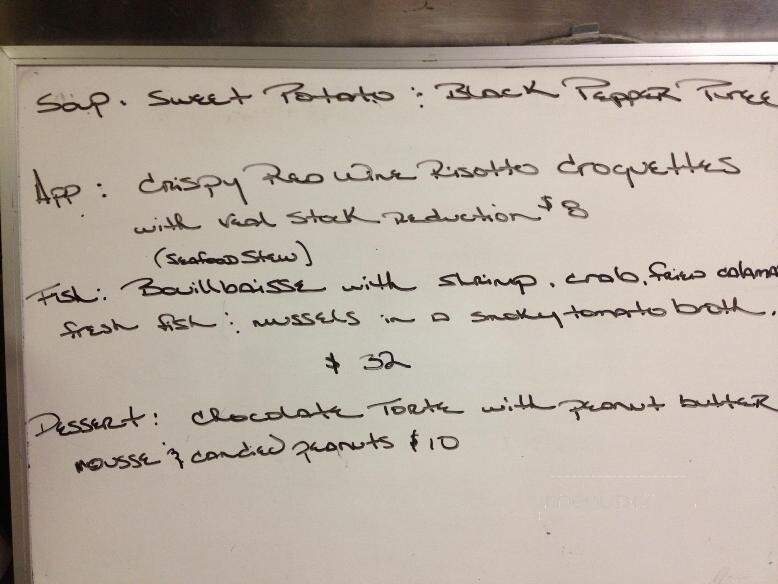 Soup. Sweet Potato & Black Pepper Puree
App: Crispy Red Wine Risotto Croquettes
with veal stock Reduction $8
(Seafood Stew)
Fish: Bouillbaisse with shrimp, crab, fried calama
fresh fish & mussels in a smoky tomato broth.
$ 32
Dessert: Chocolate Torte with peanut butter
mousse & candied peanuts $10